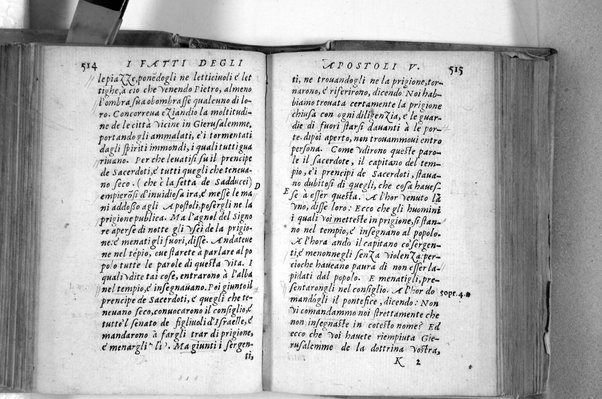 514 I FATTI DEGLI
le piazze, ponēdogli ne letticiuoli, e let
tighe, a cio che venendo Pietro, almeno
l'ombra sua obombrasse qualcuno di lo-
ro. Concorreua eziandio la moltitudi-
ne de le città vicine in Gierusalemme,
portando gli ammalati, e i tormentati
dagli spiriti immondi, i quali tutti gua
riuano. Per che leuatisi su il prencipe
de Sacerdoti, e tutti quegli che teneua-
no seco, (che è la setta de Sadducei) D
empierōsi d'inuidiosa ira, e messe le ma
ni addosso agli Apostoli, posergli ne la
prigione publica. Ma l'agnol del Signo
re aperse di notte gli vsci de la prigio
ne: e menati gli fuori, disse. Andateue
ne nel tēpio, e ue state re a parlare al po
polo tutte le parole di questa vita. I
quali vdite tai cose, entrarono a l'alba
nel tempio, e insegnauano. Poi giunto il
prencipe de Sacerdoti, e quegli che te-
neuano seco, conuocarono il consiglio, e
tutto'l senato de figliuoli d'Israelle, e
mandarono a fargli trar di prigione,
e menargli li. Ma giunti i sergen-
ti,
APOSTOLI V. 515
ti, ne trouandogli ne la prigione, tor-
narono, e riferirono, dicendo. Noi hab-
biamo trouata certamente la prigione
chiusa con ogni diligenzia, e le guar-
die di fuori starsi dauanti à le por-
te. dipoi aperto, non trouammoui entro
persona. Come vdirono queste paro-
le il sacerdote, il capitano del tem-
pio, e i prencipi de Sacerdoti, staua-
no dubitosi di quegli, che cosa hauess
E se à esser questa. A l'hor venuto là
vno, disse loro: Ecco che gli huomini
i quali voi metteste in prigione, si stan-
no nel tempio, e insegnano al popolo.
A l'hora ando il capitano co sergen-
ti, e menonnegli senza violenza: per-
cioche haueano paura di non esser la-
pidati dal popolo. E menatigli, pre-
sentarongli nel consiglio. A l'hor do Sopr. 4.
mandogli il pontefice, dicendo: Non
vi comandammo noi strettamente che
non insegnaste in cotesto nome? Ed
ecco che voi hauete riempiuta Gie-
rusalemme de la dottrina vostra,
K 2